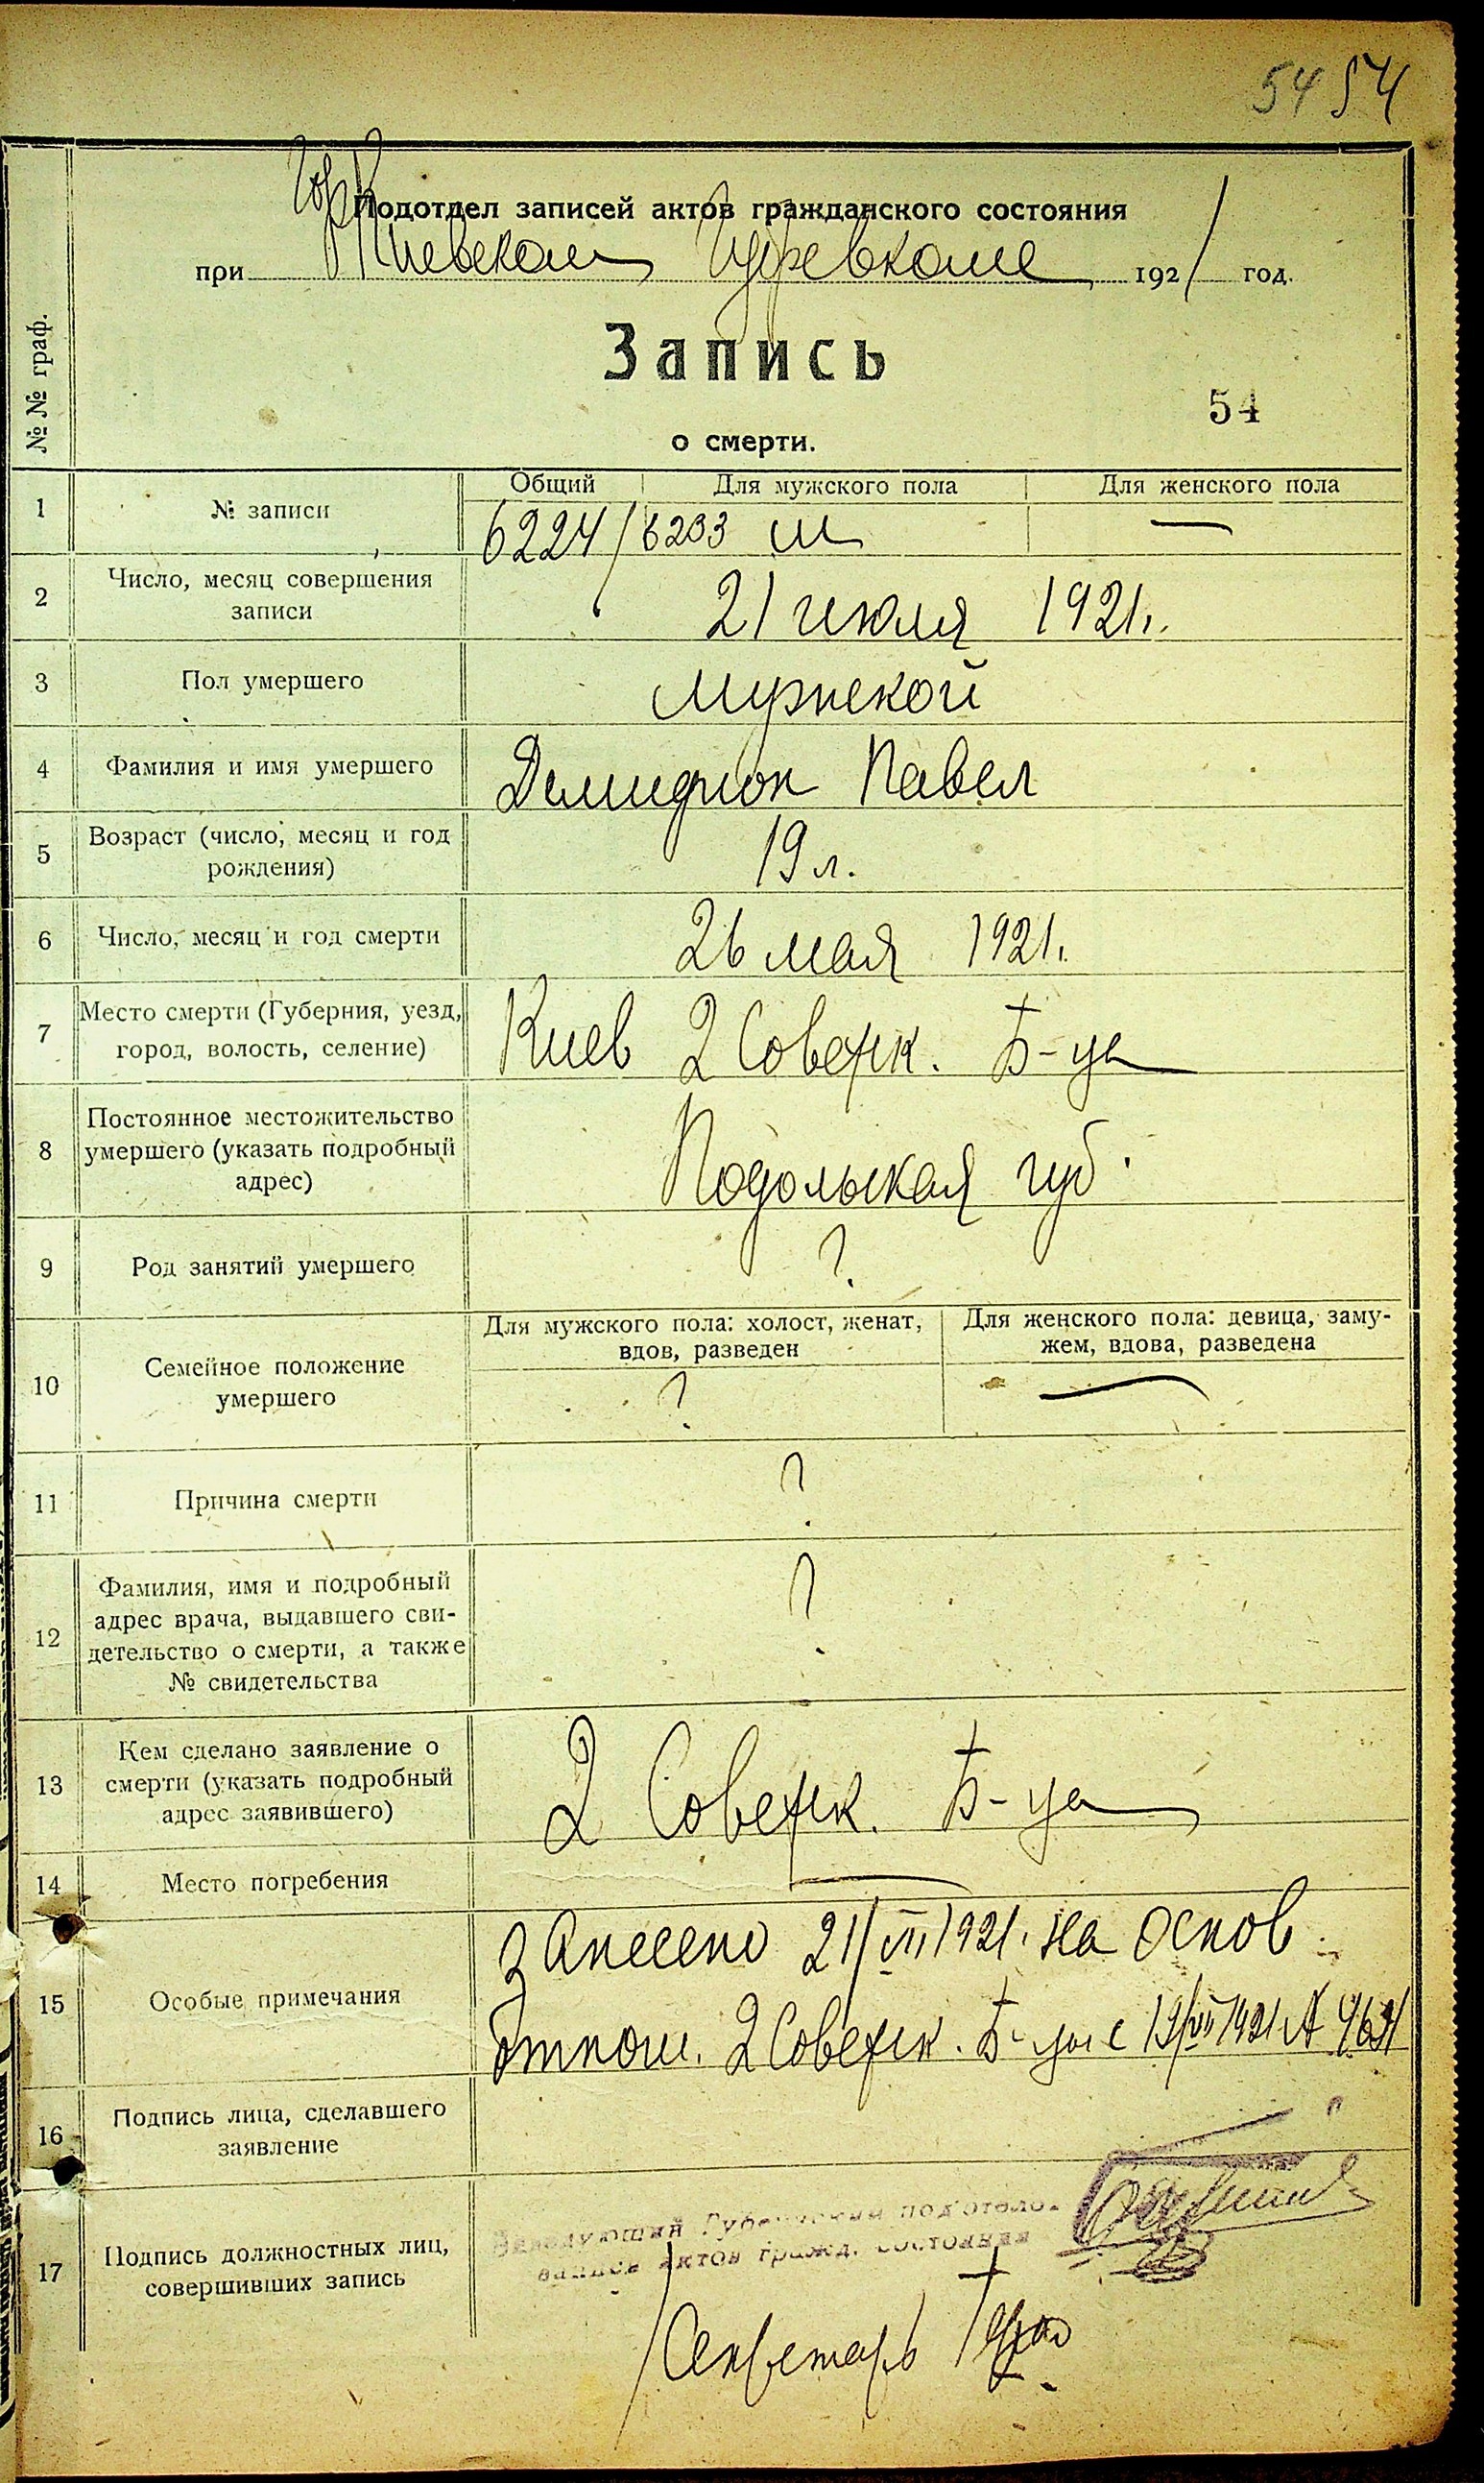 54 54
Подотдел записей актов гражданского состояния
при Киевском Губревкоме 1921 год.
Запись
54
о смерти.
№№ граф.
Общий Для мужского пола Для женского пола
1 № записи 6224/6233 м —
2 Число, месяц совершения
записи
21 июля 1921г.
3 Пол умершего мужской
4 Фамилия и имя умершего Демидюк Павел
5 Возраст (число, месяц и год
рождения)
19 л.
6 Число, месяц и год смерти 26 мая 1921г.
7 Место смерти (Губерния, уезд,
город, волость, селение)
Киев 2 Советск. Б-ца
8 Постоянное местожительство
умершего (указать подробный
адрес)
Подольская губ.
9 Род занятий умершего ?
Для мужского пола: холост, женат,
вдов, разведен
Для женского пола: девица, заму-
жем, вдова, разведена
10 Семейное положение
умершего
? —
11 Причина смерти ?
12 Фамилия, имя и подробный
адрес врача, выдавшего сви-
детельство о смерти, а также
№ свидетельства
?
13 Кем сделано заявление о
смерти (указать подробный
адрес заявившего)
2 Советск. Б-ца
14 Место погребения —
15 Особые примечания
Занесено 21/VII 1921г. на основ.
отнош. 2 Советск. Б-цы с 19/VII 1921 №
16 Подпись лица, сделавшего
заявление
17 Подпись должностных лиц,
совершивших запись
Заведующий Губернским подотдело.
записи актов гражд. состояния
Секретарь